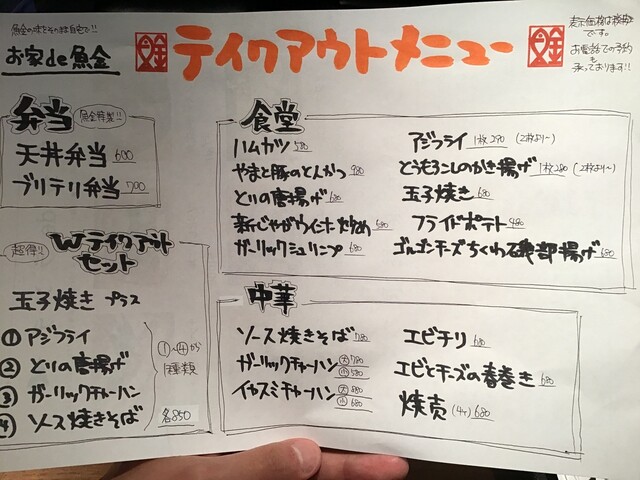 魚金の味をその頃自宅で!!
お家de魚金
テイクアウトメニュー
表示価格は税抜
です。
お電話での予約
も
承っております!!
弁当
魚金特製!!
天丼弁当 600
ブリテリ弁当 700
超得!!
Wテイクアウト
セット
玉子焼き プラス
① アジフライ
② とりの唐揚げ
③ ガーリックチャーハン
④ ソース焼きそば
①〜④から
1種類
各850
食堂
ハムカツ 580
やまと豚のとんかつ 980
とりの唐揚げ 680
新じゃがウインナー炒め 580
ガーリックシュリンプ 680
アジフライ 1枚290 (2枚より〜)
とうもろこしのかき揚げ 1枚280 (2枚より〜)
玉子焼き 680
フライドポテト 480
ゴルゴンチーズちくわ磯部揚げ 680
中華
ソース焼きそば 780
ガーリックチャーハン 大780
小580
イカスミチャーハン 大880
小680
エビチリ 680
エビとチーズの春巻き 680
焼売 (4ヶ) 680